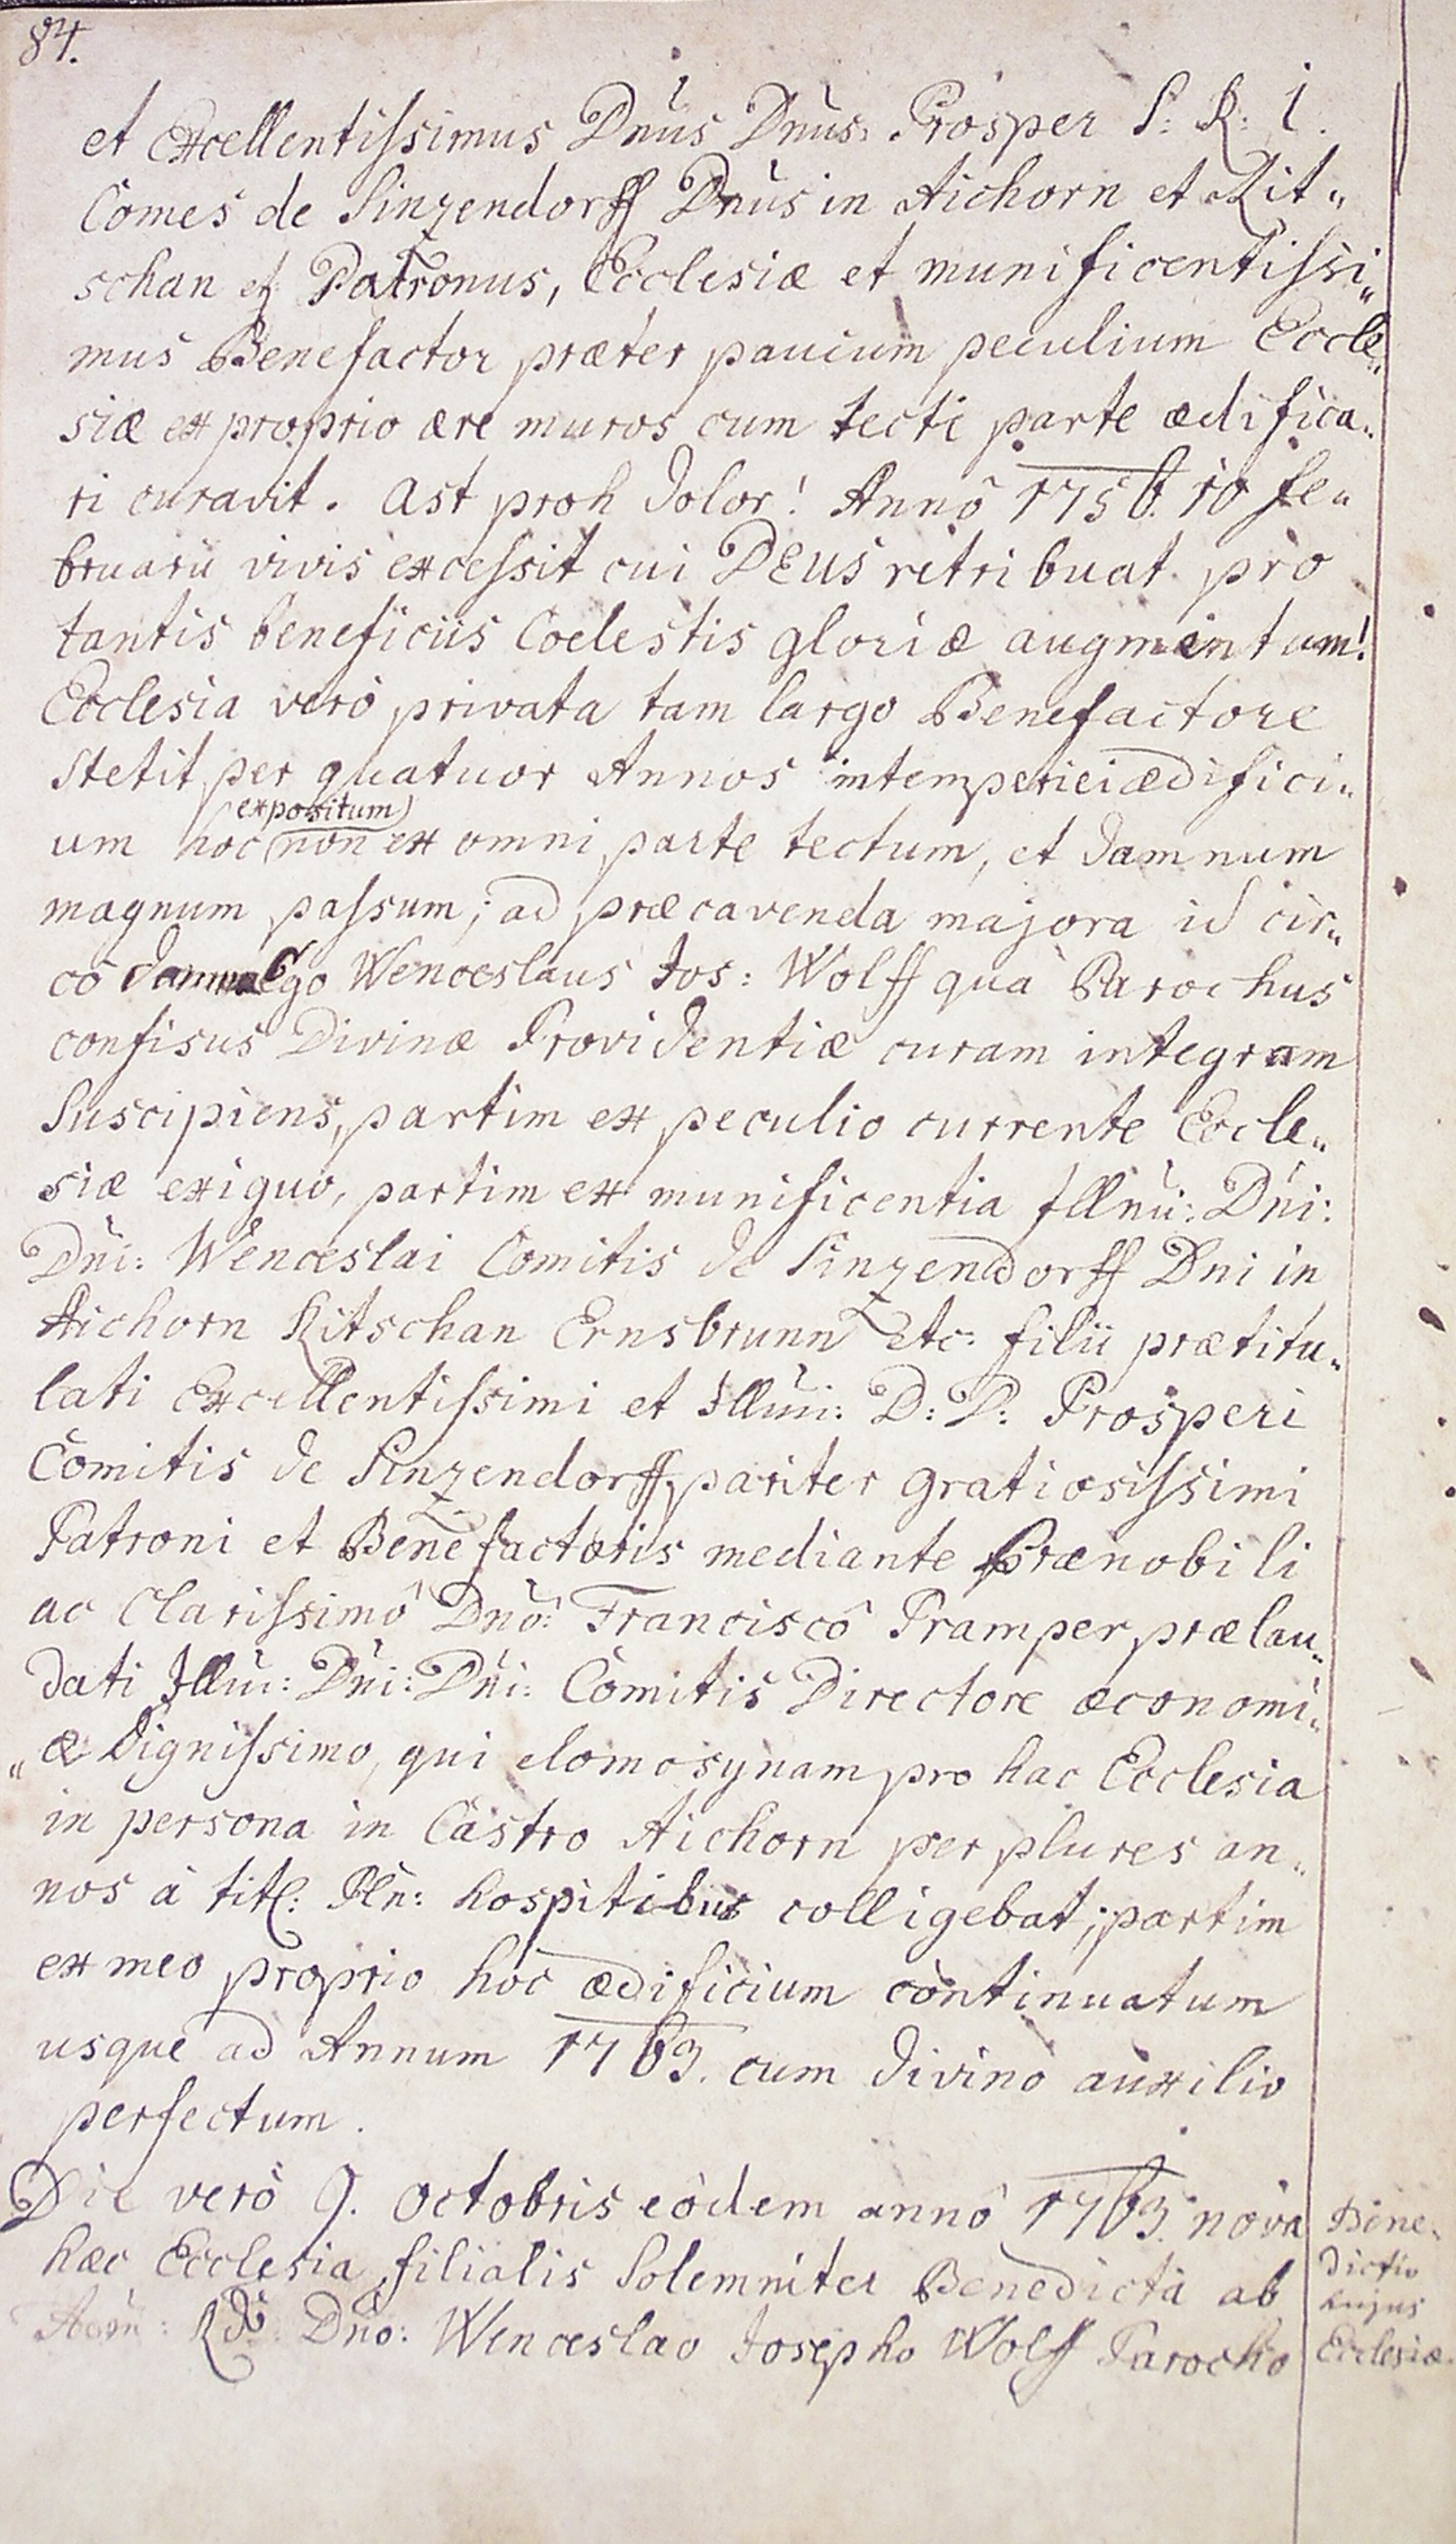 84.
et Excellentissimus Dnus Dnus: Prosper S: R: I.
Comes de Sinzendorff Dnus in Aichorn et Rit„
schan et Patronus, Ecclesiæ et munificentissi„
mus Benefactor præter paucum peculium Eccle„
siæ ex proprio ære muros cum tecti parte ædifica„
ri curavit. Ast proh dolor! Annô 1756. 10 Fe„
bruarii vivis excessit cui DEus retribuat pro
tantis beneficiis Coelestis gloriæ augmentum!
Ecclesia verò privata tam largo Benefactore
Stetit per quatuor Annos intemperiei ædifici„
expositum)
um hoc (non ex omni parte tectum, et damnum
magnum passum; ad præcavenda majora id cir„
co damna Ego Wenceslaus Jos: Wolff quà Parochus
confisus Divinæ Providentiæ curam integram
Suscipiens, partim ex peculio currente Eccle„
siæ exiguo, partim ex munificentia Illmi: Dni:
Dni: Wenceslai Comitis de Sinzendorff Dni in
Aichorn Ritschan Ernsbrunn etc: filii prætitu„
lati Excellentissimi et Illmi: D: D: Prosperi
Comitis de Sinzendorff, pariter gratiosissimi
Patroni et Benefactoris mediante Prænobili
ac Clarissimô Dnô: Franciscô Pramper prælau„
dati Illmi: Dni: Dni: Comitis Directore œconomi„
„æ Dignissimo, qui elomosynam pro hac Ecclesia
in persona in Castro Aichorn per plures an„
nos à titl: Pln: hospitibus colligebat; partim
ex meo proprio hoc ædificium continuatum
usque ad Annum 1763. cum divino auxilio
perfectum.
Die verò 9. Octobris eôdem annô 1763. nova
hæc Ecclesia filialis Solemniter Benedicta ab
Adm: Rdo: Dno: Wenceslao Josepho Wolff Parocho
Bene„
dictio
hujus
Ecclesiæ.